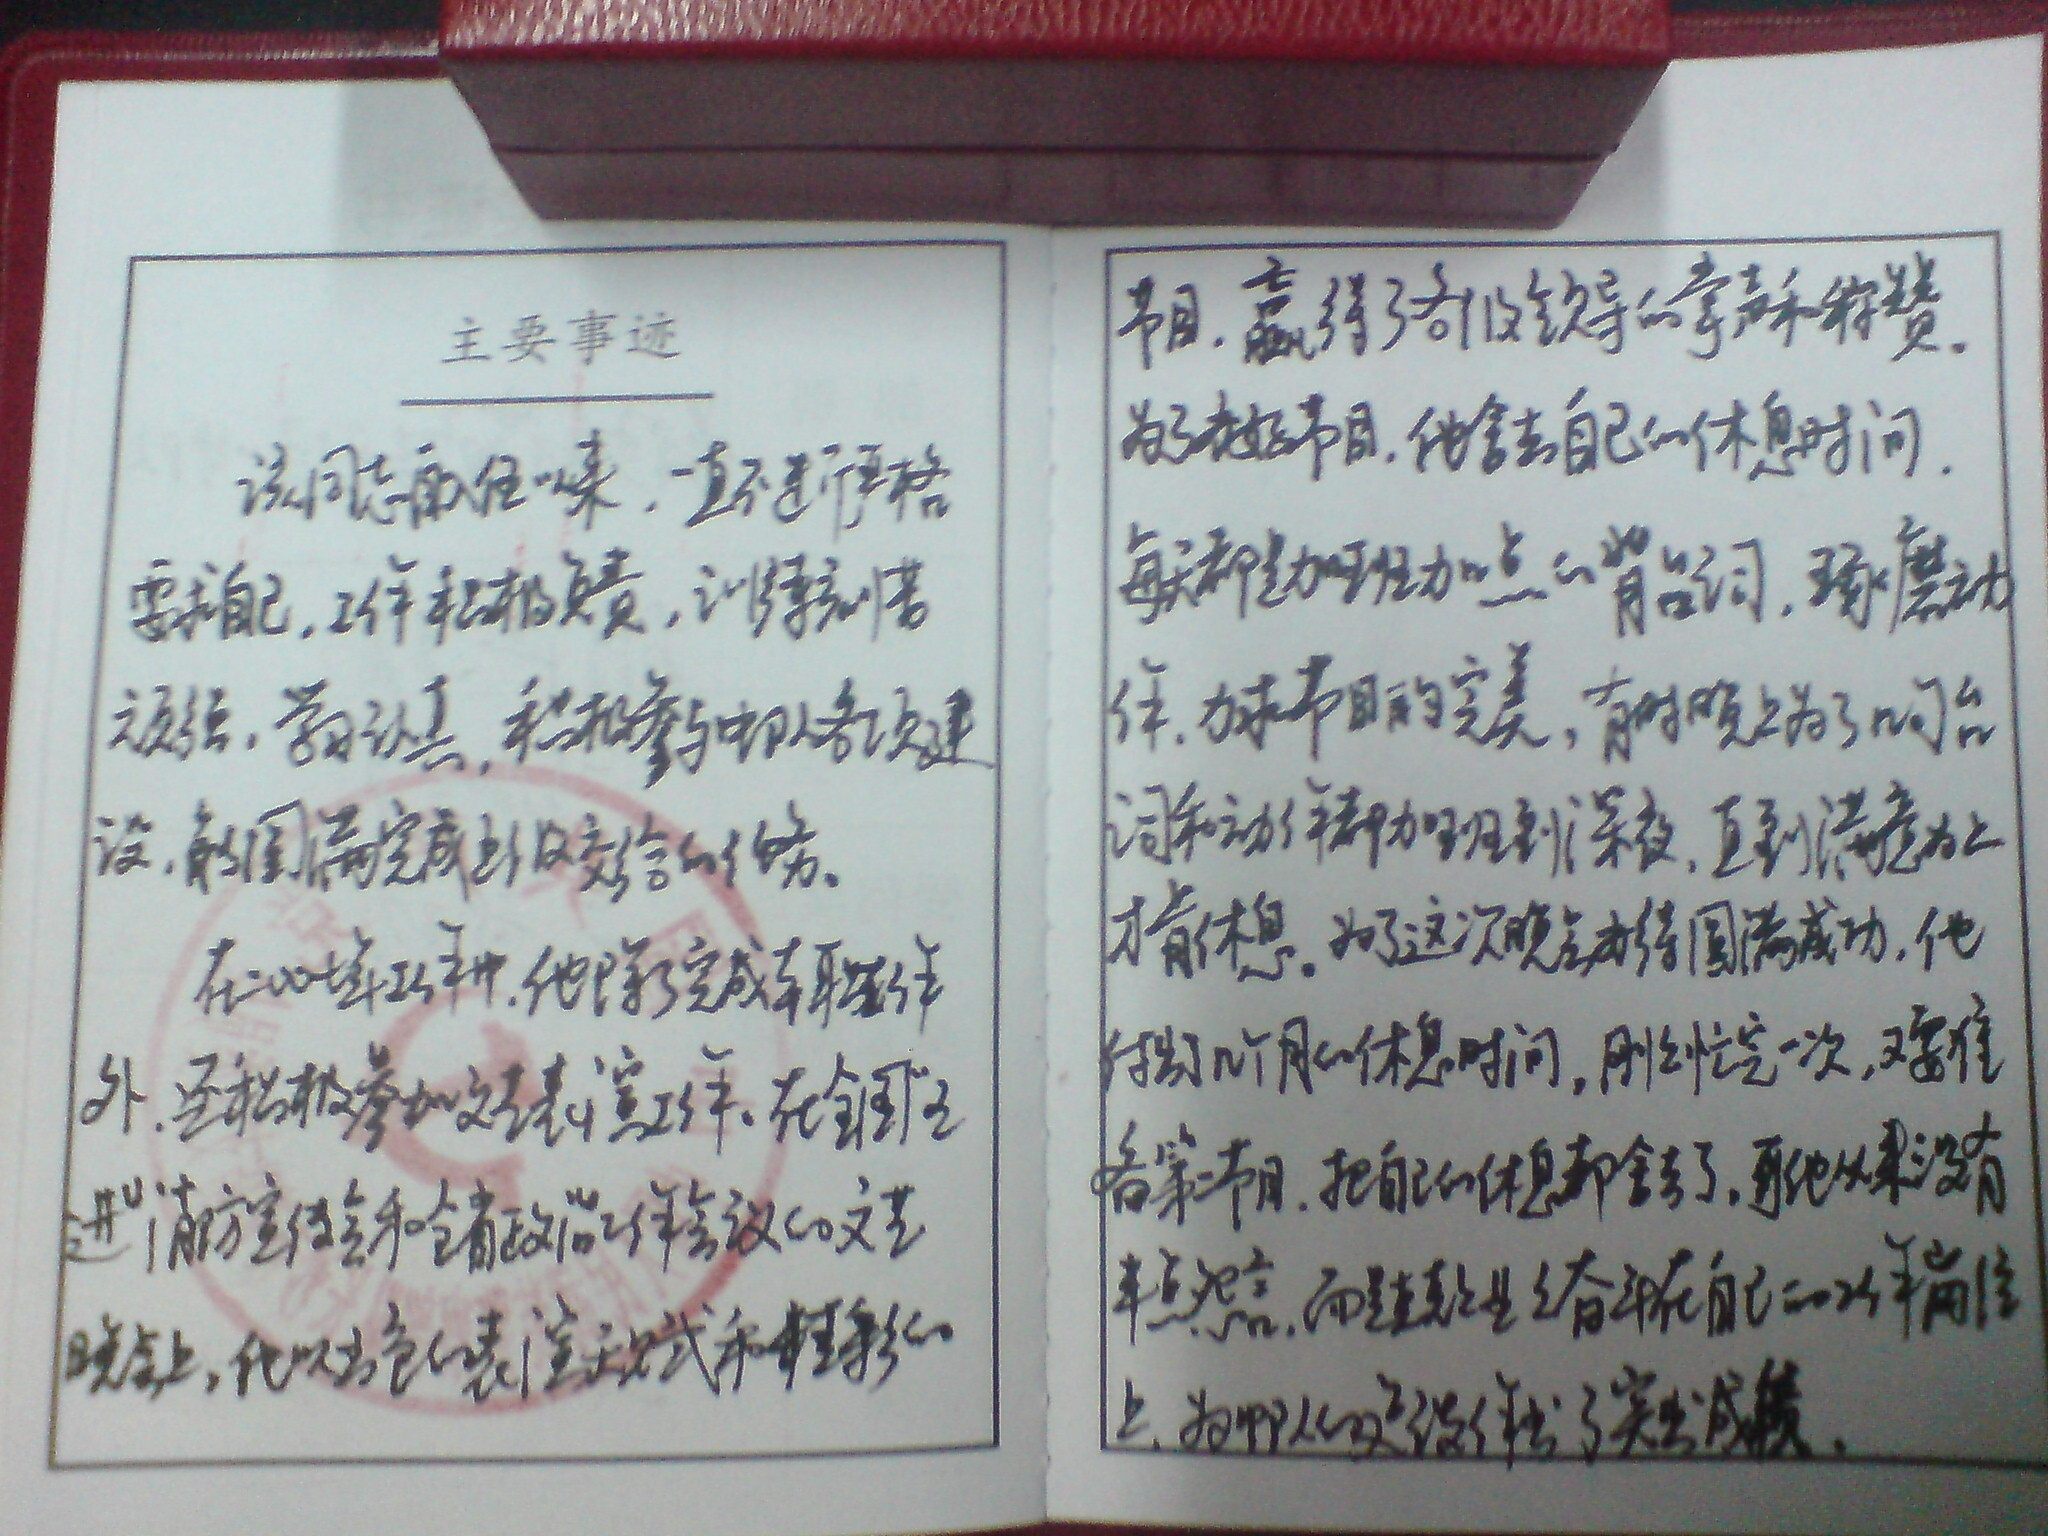 主要事迹
该同志敢任以来，一直不进严格
要求自己，工作积极负责，训练刻苦
顽强，学习认真，积极参与部队各项建
设，能圆满完成上级交给的任务。
在二00七年工作中，他除了完成本职工作
外，还积极参加文艺表演工作。在全国
进 消防宣传会和全省政治工作会议的文艺
晚会上，他以出色的表演 和精彩的
节目，赢得了各级领导的掌声和称赞。
为了表好节目，他舍去自己的休息时间，
每天都是加班加点的背台词，琢磨动
作，力求节目的完美，有时晚上为了几句台
词和动作都加班到深夜，直到满意为止
才肯休息。为了这次晚会办得圆满成功，他
付出了几个月的休息时间，刚刚忙完一次，又要准
备第二节目，把自己的休息都舍去了，可他从来没有
半点怨言，而是 奋斗在自己的工作岗位
上，为部队的建设作出了突出成绩。